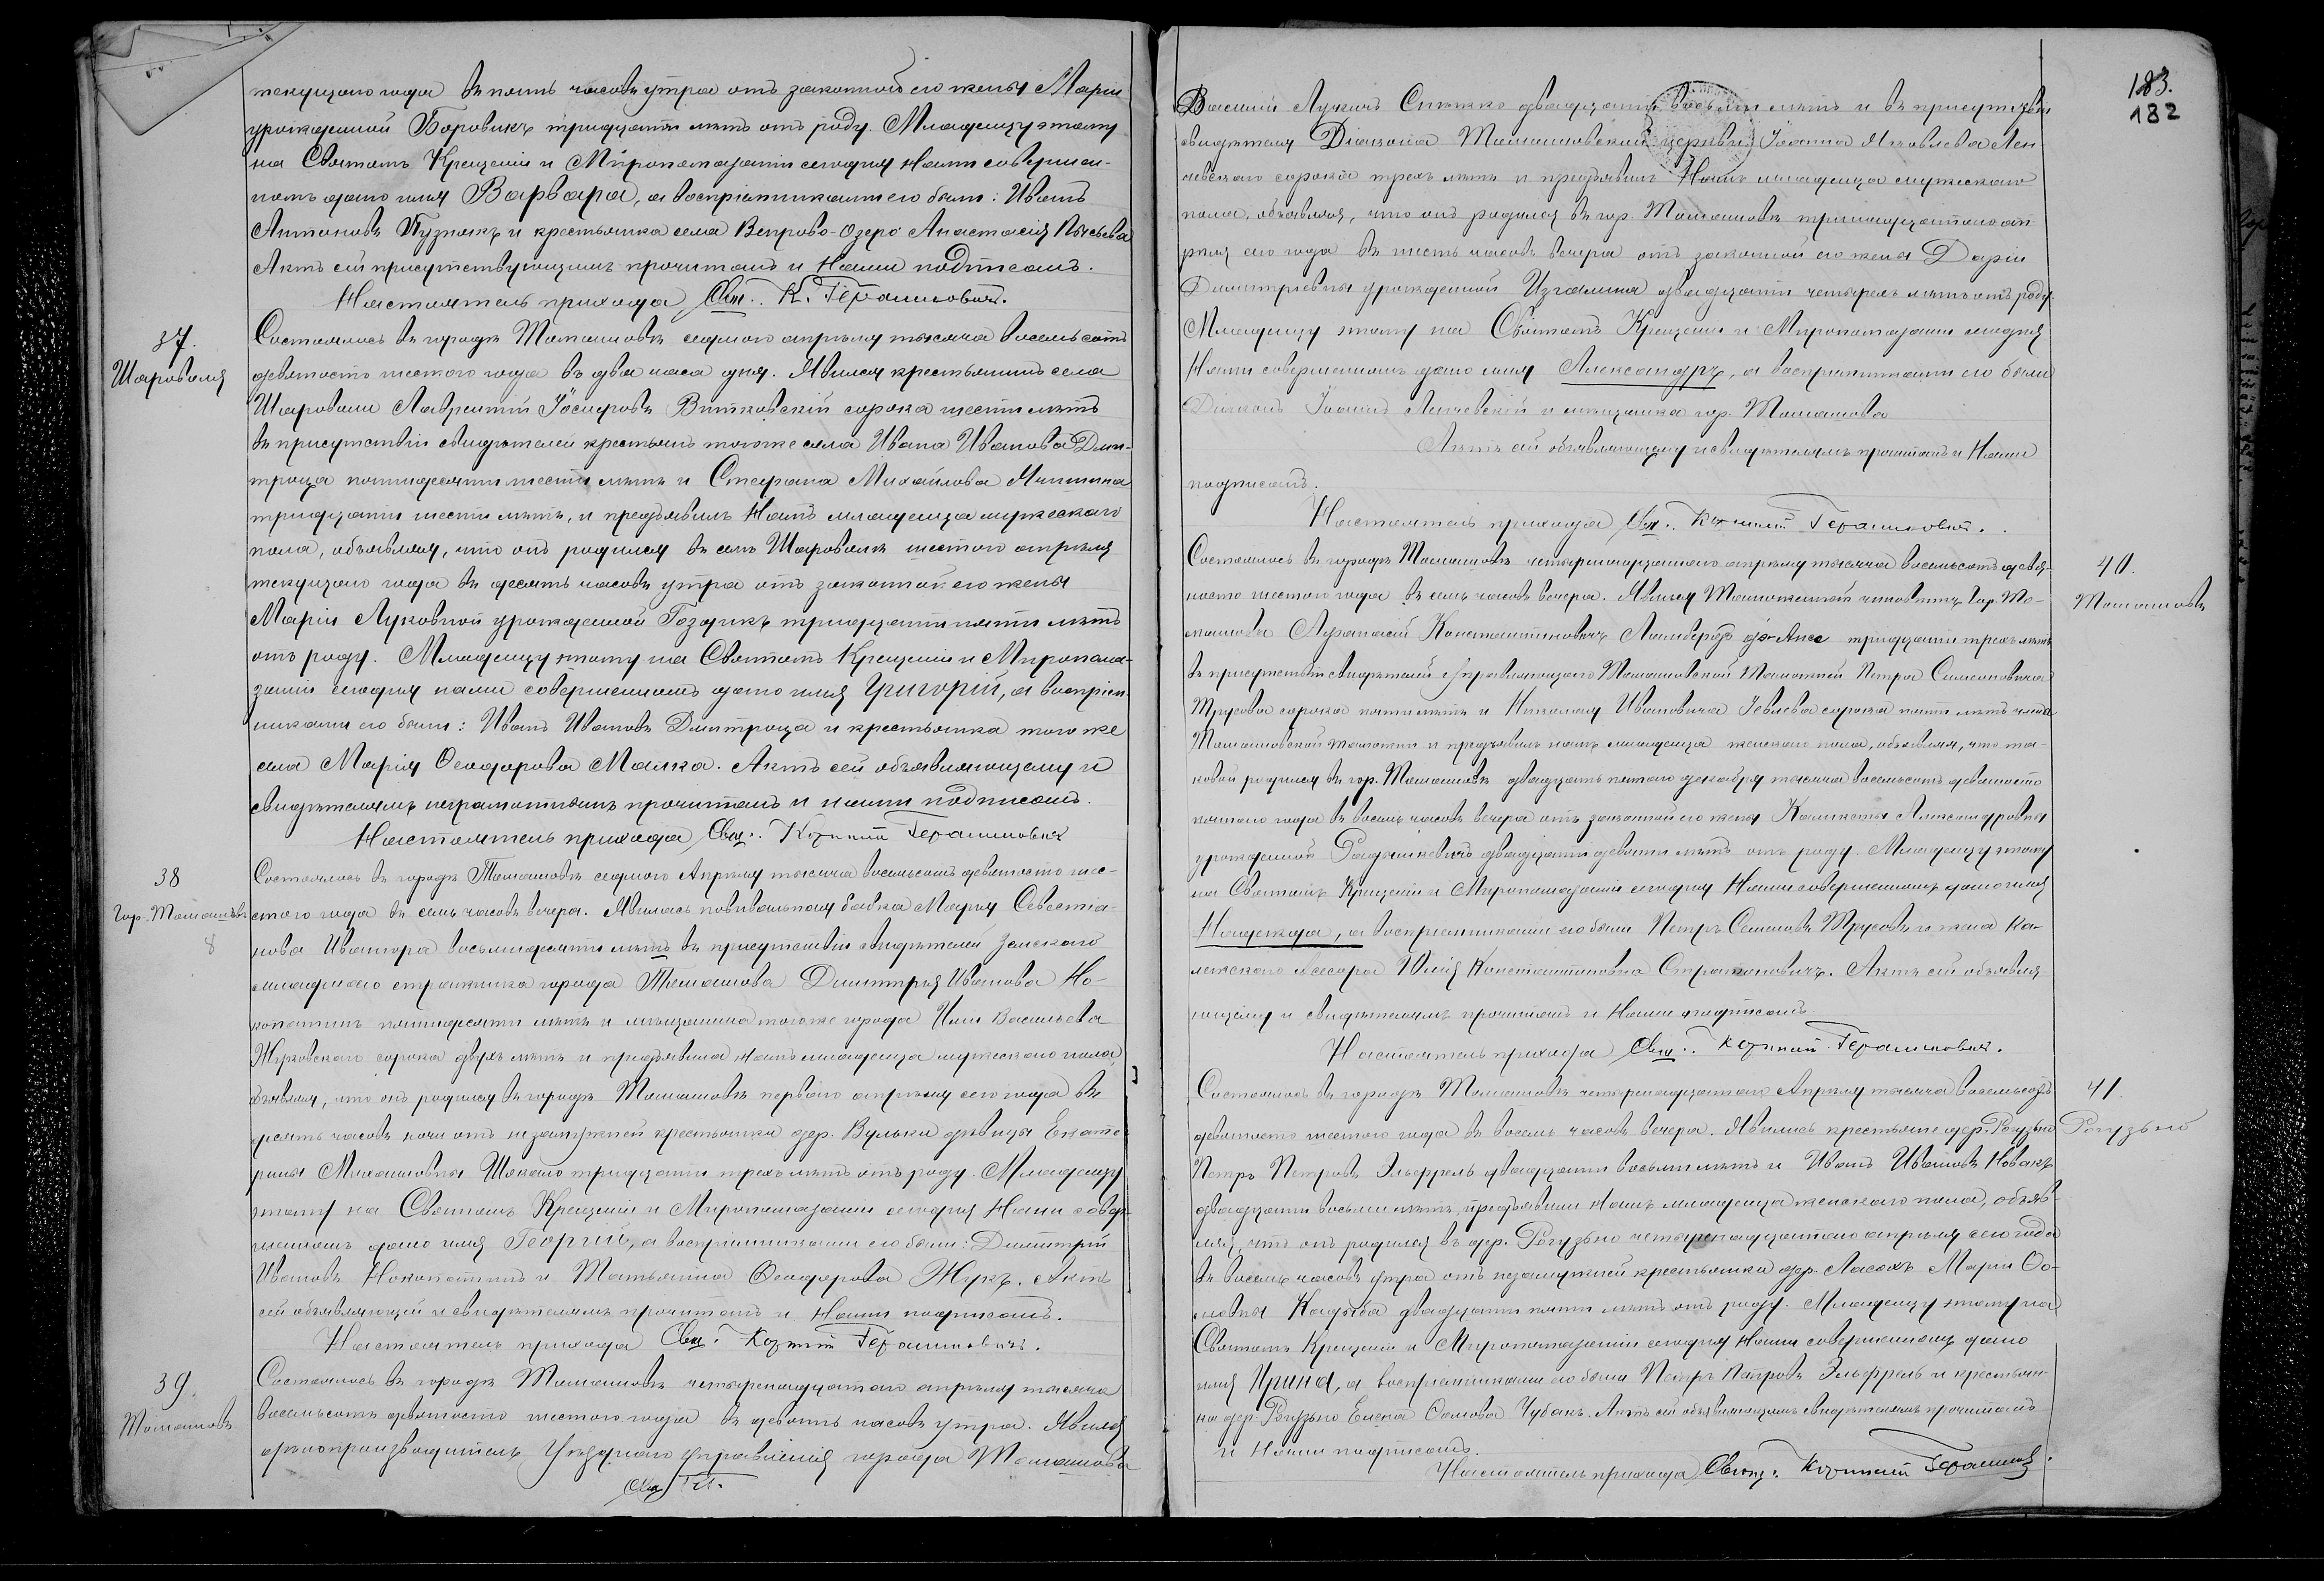 текущаго года въ пять часовъ утра отъ законной его жены Маріи
урожденной Боровикъ тридцати лѣтъ отъ роду. Младенцу этому
на Святомъ Крещеніи и Мѵропомазаніи сегодня Нами совершен-
номъ дано имя Варвара, а воспріемниками его были: Иванъ
Антоновъ Пузнякъ и крестьянка села Вепрово-Озеро Анастасія
Актъ сей присутствующимъ прочитанъ и Нами подписанъ.
Настоятель прихода Свящ. К. Герасимовичъ.
37.
Шароволя
Состоялось въ городѣ Томашовѣ седмого апрѣля тысяча восемьсотъ
девяносто шестого года въ два часа дня. Явился крестьянинъ села
Шароволи Лаврентій Іосифовъ Витковскій сорока шести лѣтъ
въ присутствіи свидѣтелей крестьянъ тогоже села Ивана Иванова Дми-
троца пятидесяти шести лѣтъ и Стефана Михайлова
тридцати шести лѣтъ, и предъявилъ Намъ младенца мужескаго
пола, объявляя, что онъ родился въ селѣ Шароволѣ шестого апрѣля
текущаго года въ десять часовъ утра отъ законной его жены
Маріи Луковной урожденной Гоздикъ тридцати пяти лѣтъ
отъ роду. Младенцу этому на Святомъ Крещеніи и Мѵропома-
заніи сегодня нами совершенномъ дано имя Григорій, а воспріем-
никами его были: Иванъ Ивановъ Дмитроца и крестьянка того же
села Марія Ѳеодорова Малка. Актъ сей объявляющему и
свидѣтелямъ неграмотнымъ прочитанъ и нами подписанъ.
Настоятель прихода Свящ. Корнилій Герасимовичъ
38
Гор. Томашовъ
8
Состоялось въ городѣ Томашовѣ седмого Апрѣля тысяча восемьсотъ девяносто шес-
стого года въ семь часовъ вечера. Явилась повивальная бабка Марія Севестіа-
нова Иванюра восьмидесяти лѣтъ въ присутствіи свидѣтелей Земскаго
младшаго стражника города Томашова Димитрія Иванова Но-
копотинъ пятидесяти лѣтъ и мѣщанина тогоже города Ильи Васильева
Жуковскаго сорока двухъ лѣтъ и предъявила Намъ младенца мужескаго пола,
объявляя, что онъ родился въ городѣ Томашовѣ перваго апрѣля сего года въ
десять часовъ ночи отъ незамужней крестьянки дер. Вульки дѣвицы Екате-
рины Михайловны Шокало тридцати трехъ лѣтъ отъ роду. Младенцу
этому на Святомъ Крещеніи и Мѵропомазаніи сегодня Нами совер-
шенномъ дано имя Георгій, а воспріемниками его были: Димитрій
Ивановъ Нокопотинъ и Татьянна Ѳеодорова Жукъ. Актъ
сей объявляющей и свидѣтелямъ прочитанъ и Нами подписанъ.
Настоятель прихода Свящ. Корнилій Герасимовичъ.
39.
Томашовъ
Состоялось въ городѣ Томашовѣ четырнадцатаго апрѣля тысяча
восемьсотъ девяносто шестого года въ девять часовъ утра. Явился
дѣлопроизводитель Уѣзднаго Управленія города Томашова
183.
182
Василій Лукичъ Снѣжко двадцати восьми лѣтъ и въ присутствіи
свидѣтеля Діакона Томашовской церкви Іоанна Яковлева Лен-
чевскаго сорока трехъ лѣтъ и предъявилъ Намъ младенца мужескаго
пола, объявляя, что онъ родился въ гор. Томашовѣ тринадцатаго ап-
рѣля сего года въ шесть часовъ вечера отъ законной его жены Даріи
Димитріевны урожденной двадцати четырехъ лѣтъ отъ роду.
Младенцу этому на Святомъ Крещеніи и Мѵропомазаніи сегодня
Нами совершенномъ дано имя Александръ, а воспріемниками его были
Діаконъ Іоаннъ Ленчевскій и мѣщанка гор. Томашова
Актъ сей объявляющему и свидѣтелямъ прочитанъ и Нами
подписанъ.
Настоятель прихода Свящ. Корнилій Герасимовичъ.
40.
Томашовъ
Состоялось въ городѣ Томашовѣ четырнадцатаго апрѣля тысяча восемьсотъ девя-
носто шестого года въ семь часовъ вечера. Явился Таможенный чиновникъ Гор. То-
машова Константиновичъ тридцати трехъ лѣтъ
въ присутствіи свидѣтелей Управляющаго Томашовской Таможней Петра Симеоновича
Трусова сорока пяти лѣтъ и Николая Ивановича Іевлева сорока пяти лѣтъ
Томашовской таможни и предъявилъ намъ младенца женскаго пола, объявляя, что та-
ковой родился въ гор. Томашовѣ двадцать пятаго декабря тысяча восемьсотъ девяносто
пятаго года въ восемь часовъ вечера отъ законной его жены Александровны
урожденной двадцати девяти лѣтъ отъ роду. Младенцу этому
на Святомъ Крещеніи и Мѵропомазаніи сегодня Нами совершенномъ дано имя
Надежда, а воспріемниками его были Петръ Семеновъ Трусовъ и жена Ка-
лежскаго Асесора Юлія Константиновна Стратоновичъ. Актъ сей объявля-
ющему и свидѣтелямъ прочитанъ и Нами подписанъ
Настоятель прихода Свящ. Корнилій Герасимовичъ.
41.
Рогузьно
Состоялось въ городѣ Томашовѣ четырнадцатаго Апрѣля тысяча восемьсотъ
девяносто шестого года въ восемь часовъ вечера. Явились крестьяне дер. Рогузьно
Петръ Петровъ Эльффель двадцати восьми лѣтъ и Иванъ Ивановъ Новакъ
двадцати восьми лѣтъ, предъявили Намъ младенца женскаго пола, объяв-
ляя, что онъ родился въ дер. Рогузьно четырнадцатаго апрѣля сего года
въ восемь часовъ утра отъ незамужней крестьянки дер. Ласохъ Маріи Ѳо-
Кадыба двадцати пяти лѣтъ отъ роду. Младенцу этому на
Святомъ Крещеніи и Мѵропомазаніи сегодня Нами совершенномъ дано
имя Ирина, а воспріемниками его были Петръ Петровъ Эльффель и крестьян-
ка дер. Рогузьно Елена Чубакъ. Актъ сей объявляющимъ свидѣтелямъ прочитанъ
и Нами подписанъ.
Настоятель прихода Свящ. Корнилій Герасимов